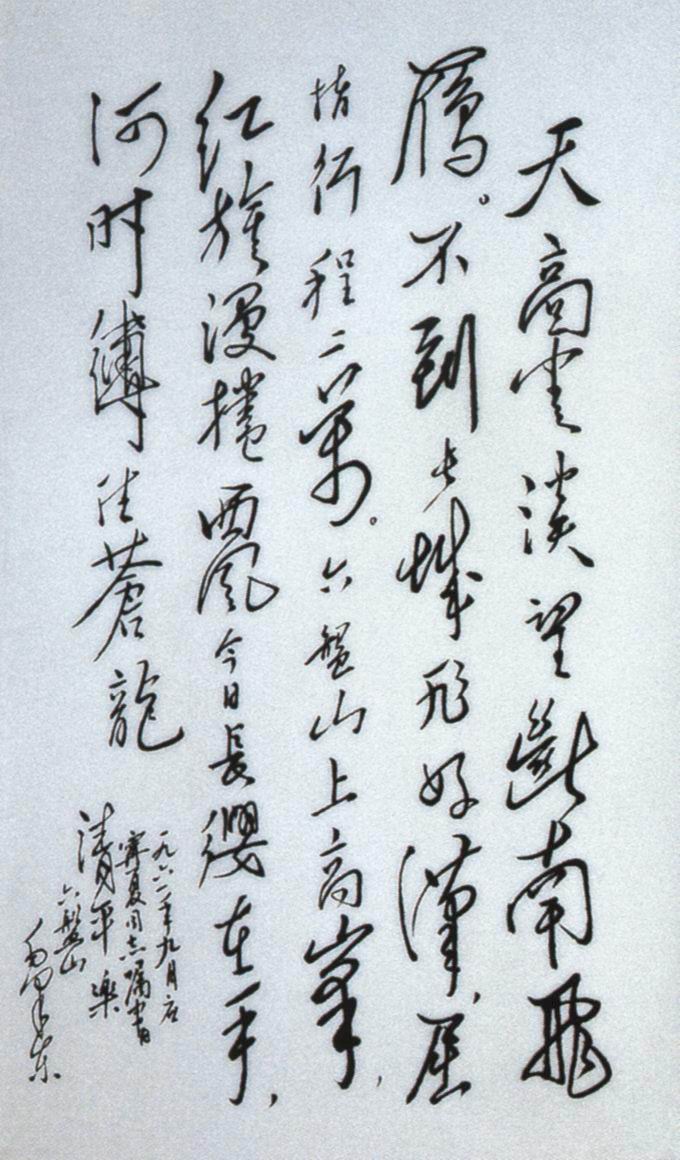 天高雲淡望斷南飛
鴈。不到长城非好漢，屈
指行程二萬。六盤山上高峯，
红旗漫捲西風今日長纓在手，
何时縛住蒼龍
一九六一年九月应
寧夏同志嘱書
清平樂
六盤山
毛泽东